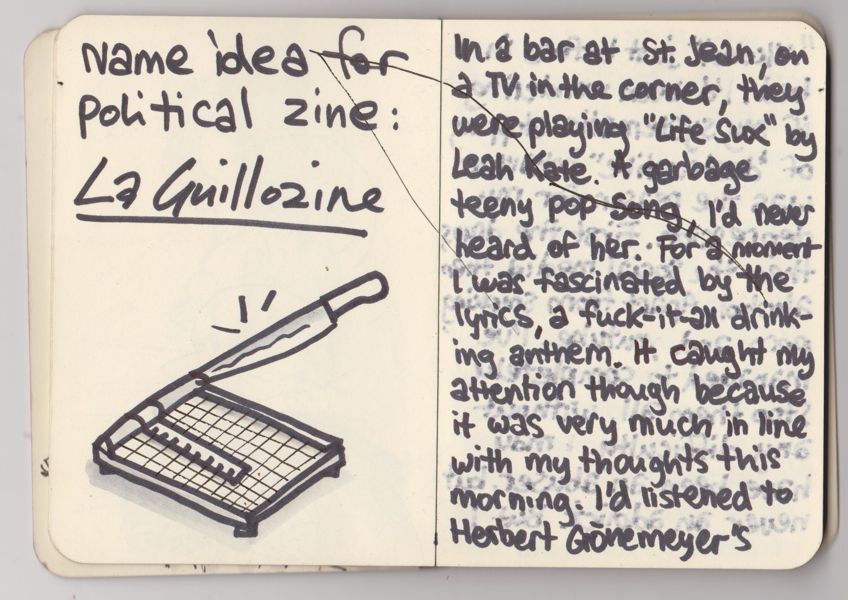 Name idea for
political zine:
La Guillozine
In a bar at St. Jean, on
a TV in the corner, they
were playing "Life Sux" by
Leah Kate. A garbage
teeny pop song, I'd never
heard of her. For a moment
I was fascinated by the
lyrics, a fuck-it-all drink-
ing anthem. It caught my
attention though because
it was very much in line
with my thoughts this
morning. I'd listened to
Herbert Grönemeyer's